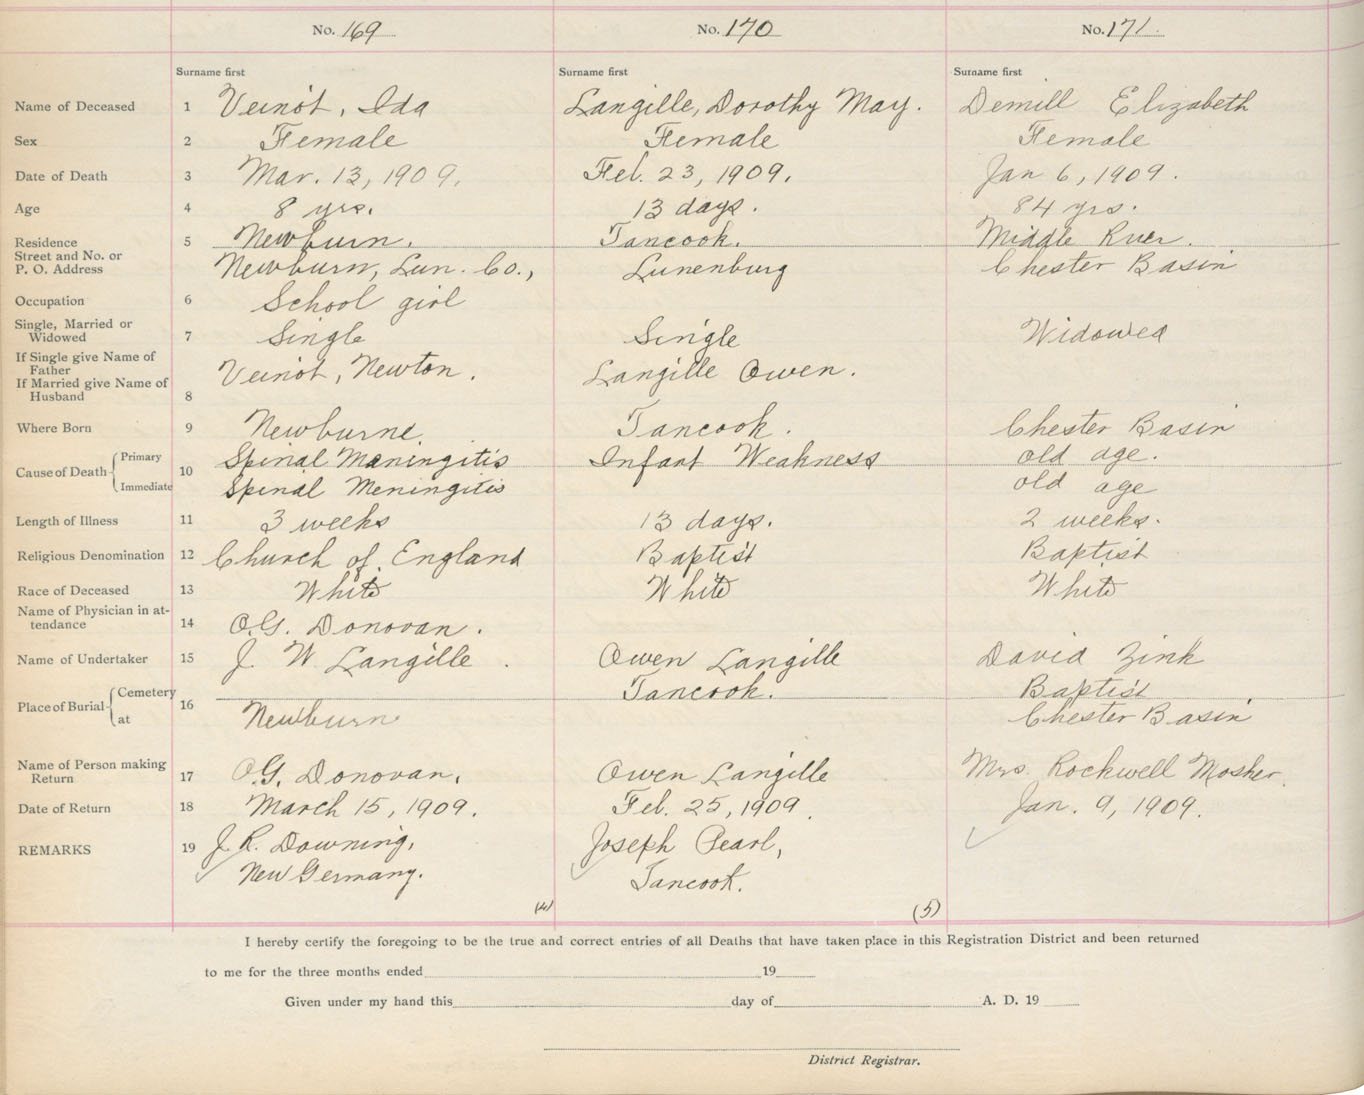 No. 169 No. 170 No. 171.
Surname first Surname first Surname first
Name of Deceased 1 Veinot, Ida Langille, Dorothy May. Demill Elizabeth
Sex 2 Female Female Female
Date of Death 3 Mar. 13, 1909. Feb. 23, 1909. Jan 6, 1909.
Age 4 8 yrs. 13 days. 84 yrs.
Residence 5 Newburn. Tancook. Middle River.
Street and No. or
P. O. Address Newburn, Lun. Co., Lunenburg Chester Basin
Occupation 6 School girl
Single, Married or
Widowed 7 Single Single Widowed
If Single give Name of
Father Veinot, Newton. Langille Owen.
If Married give Name of
Husband 8
Where Born 9 Newburne Tancook. Chester Basin
Cause of Death Primary 10 Spinal Meningitis Infant Weakness old age.
Immediate Spinal Meningitis old age
Length of Illness 11 3 weeks 13 days. 2 weeks.
Religious Denomination 12 Church of England Baptist Baptist
Race of Deceased 13 White White White
Name of Physician in at-
tendance 14 O.G. Donovan.
Name of Undertaker 15 J. W Langille. Owen Langille David Zink
Place of Burial Cemetery 16 Tancook. Baptist
at Newburn Chester Basin
Name of Person making
Return 17 O.G. Donovan. Owen Langille Mrs. Rockwell Mosher.
Date of Return 18 March 15, 1909. Feb. 25, 1909. Jan. 9, 1909.
REMARKS 19 J. R. Downing, Joseph Pearl,
New Germany. Tancook.
(4) (5)
I hereby certify the foregoing to be the true and correct entries of all Deaths that have taken place in this Registration District and been returned
to me for the three months ended 19
Given under my hand this day of A. D. 19
District Registrar.